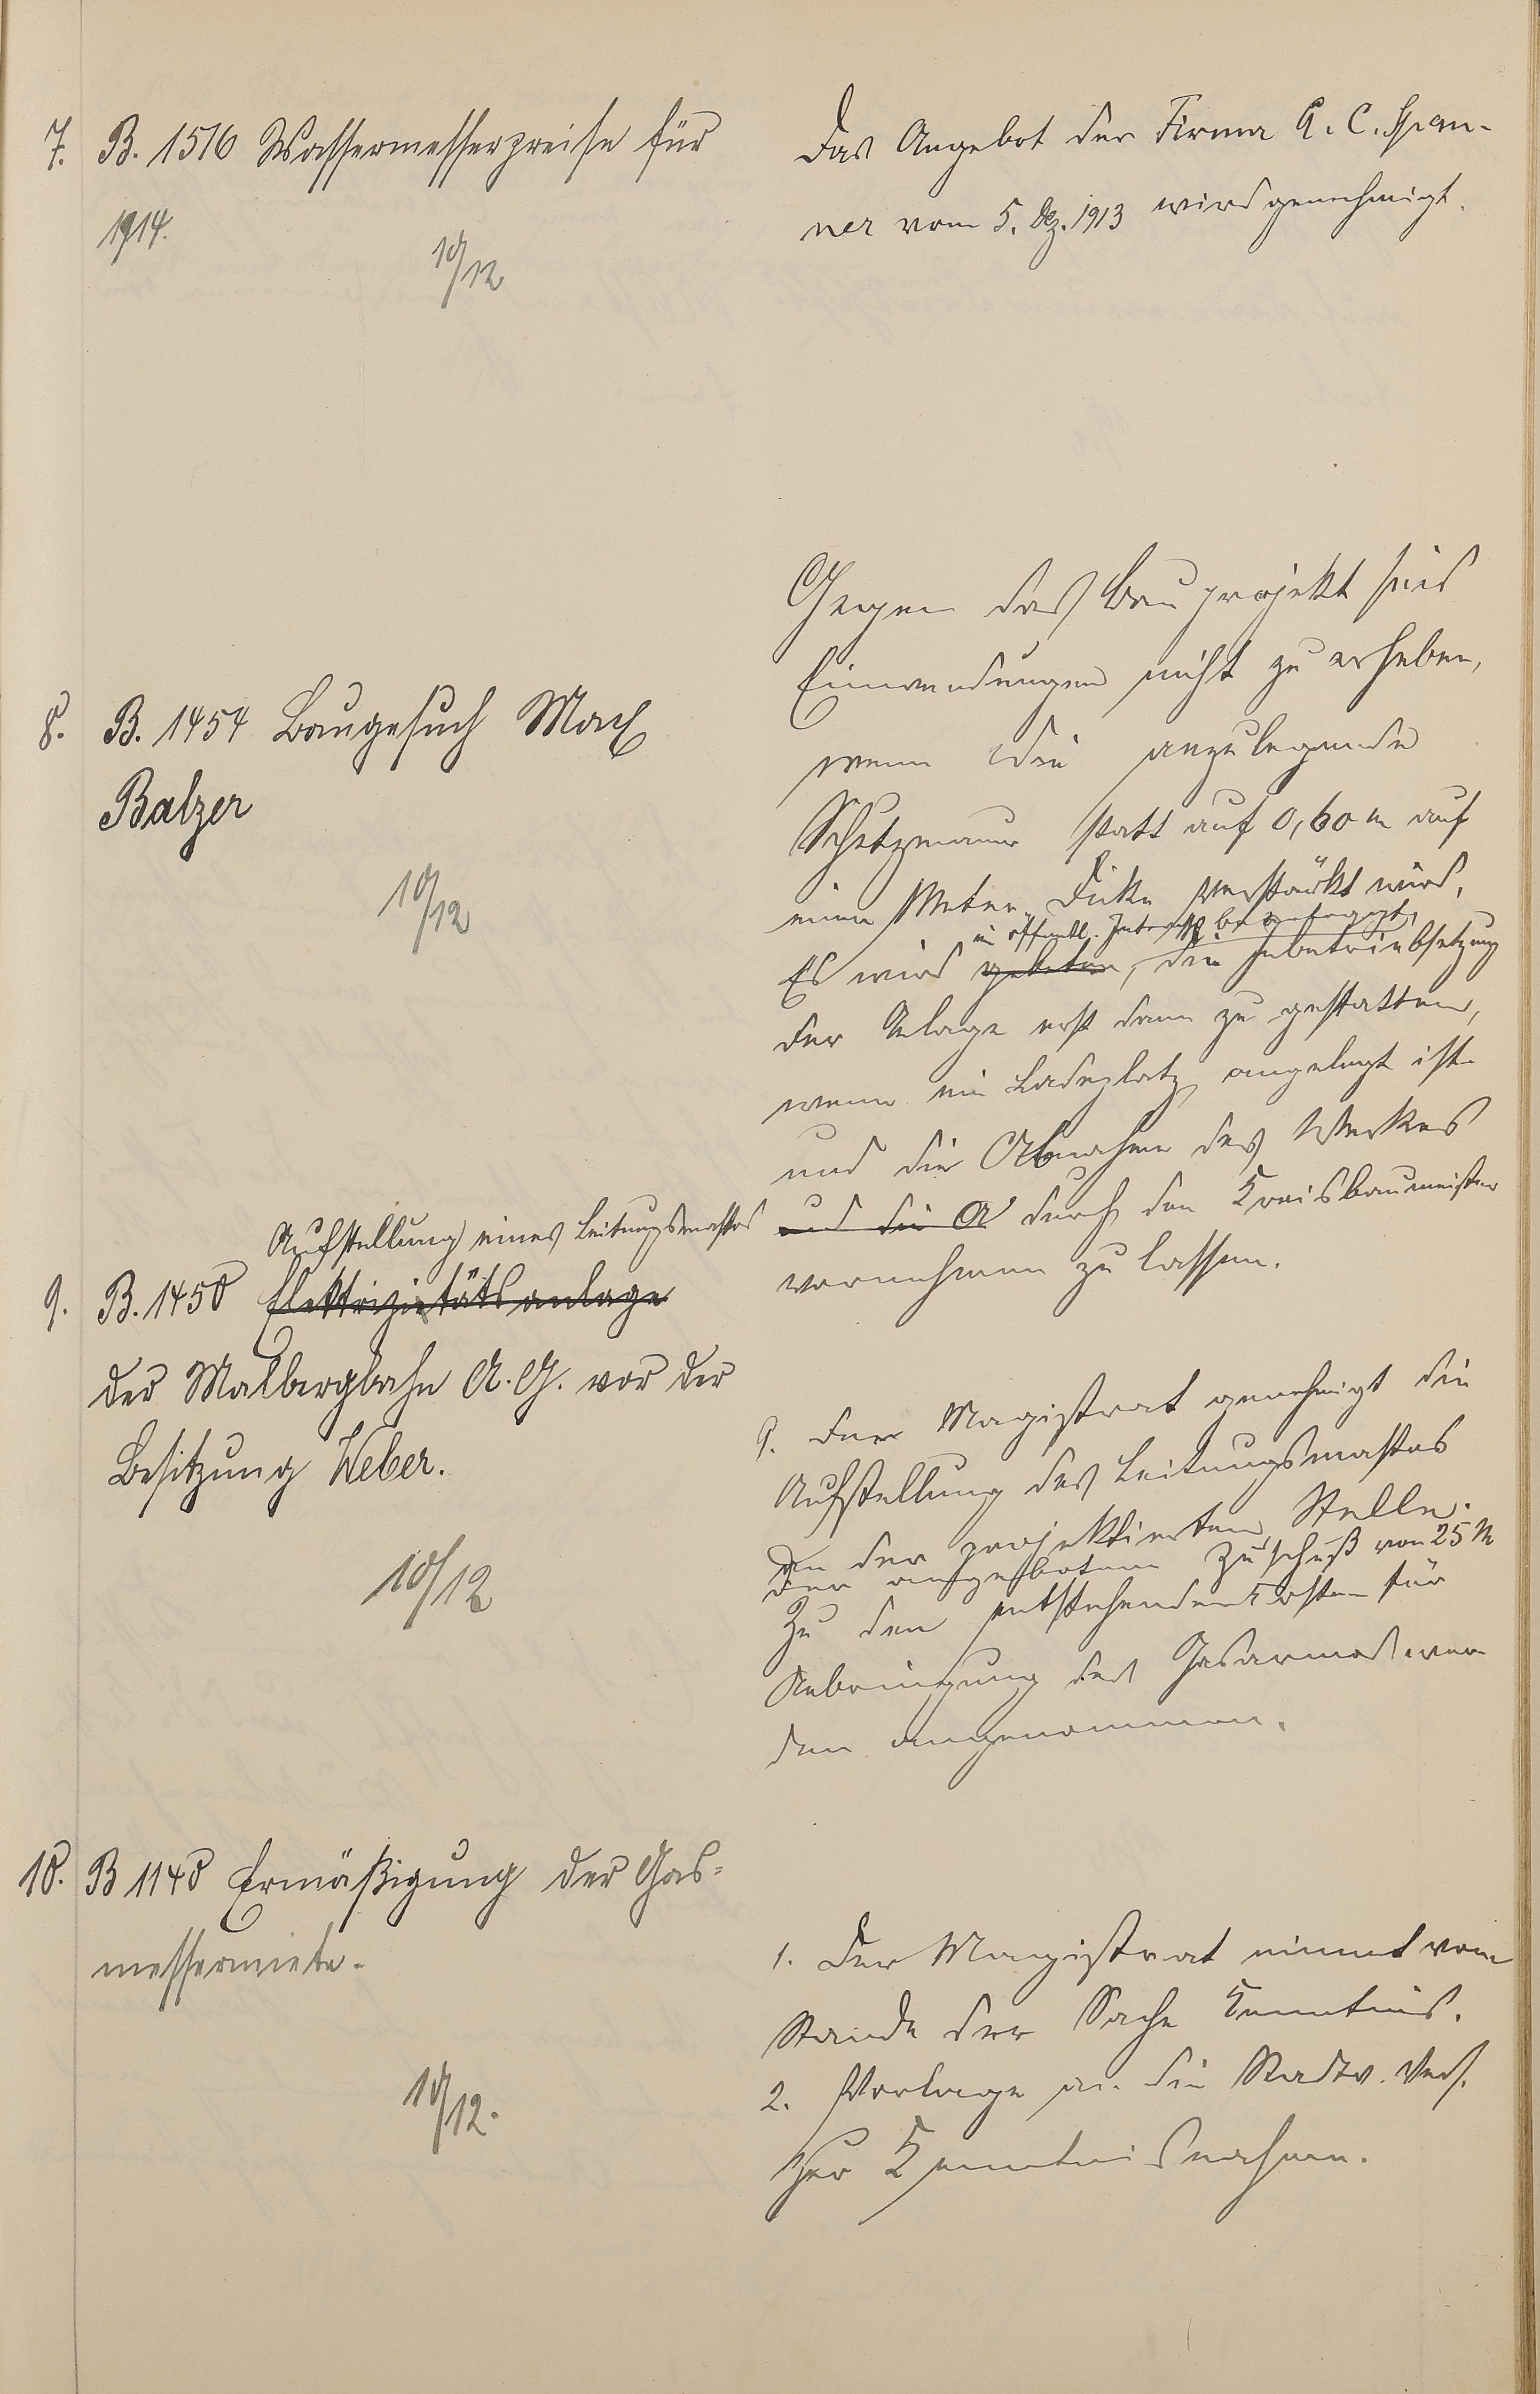 7. B. 1516 Wassermesserpreise für
1914.
10/12
Das Angebot der Firma A. C. Span-
ner vom 5. Dez. 1913 wird genehmigt.
8. B. 1454 Baugesuch Max
Balzer
10/12
Gegen das Bauprojekt sind
Einwendungen nicht zu erheben,
wenn die anzulegende
Schutzmauer statt auf 0,60 m auf
einen Meter Dicke verstärkt wird.
im öffentl. Interesse beantragt,
Es wird gebeten, die Inbetriebsetzung
der Anlage erst dann zu gestatten,
wenn ein Ladeplatz angelegt ist
und die Abnahme des Werkes
und die A durch den Kreisbaumeister
vornehmen zu lassen.
Aufstellung eines Leitungsmastes
9. B. 1450 Elektrizitätsanlage
der Malbergbahn A. G. vor der
Besitzung Weber.
10/12
9. Der Magistrat genehmigt die
Aufstellung des Leitungsmastes
an der projektierten Stelle.
Der angebotene Zuschuß von 25 M
zu den entstehenden Kosten für
Anbringung des Gasarmes wer
den angenommen.
10. B 1140 Ermäßigung der Gas-
messermiete.
10/12.
1. Der Magistrat nimmt vom
Stande der Sache Kenntnis.
2. Vorlage an die Stadtv. Vers.
zur Kenntnisnahme.